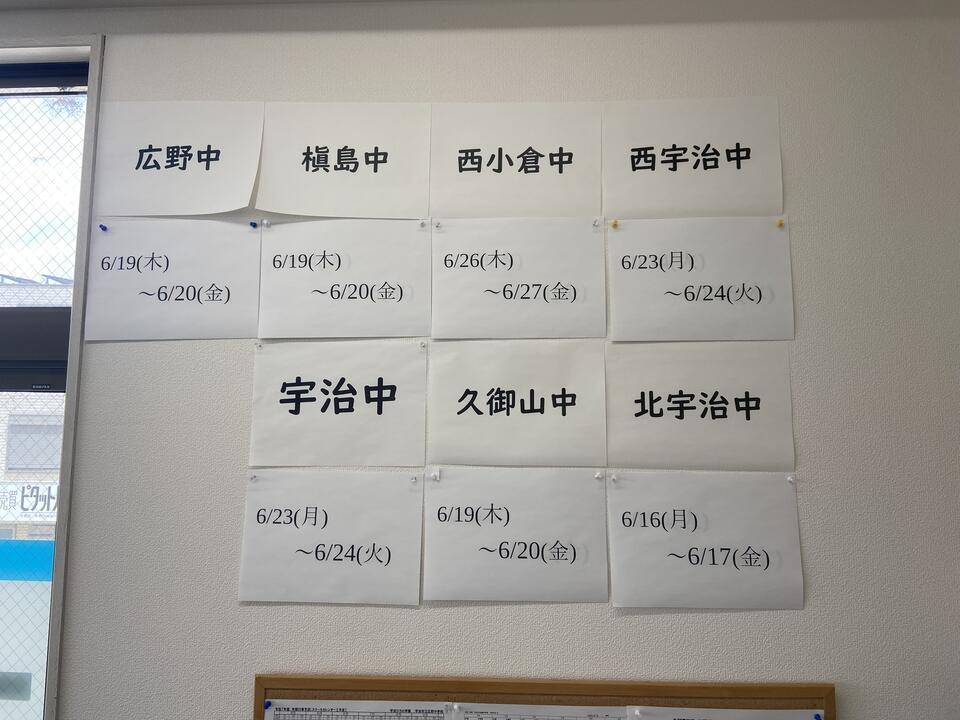 広野中
槇島中
西小倉中
西宇治中
6/19(木)
～6/20(金)
6/19(木)
～6/20(金)
6/26(木)
～6/27(金)
6/23(月)
～6/24(火)
宇治中
久御山中
北宇治中
6/23(月)
～6/24(火)
6/19(木)
～6/20(金)
6/16(月)
～6/17(金)
売買 ピタット